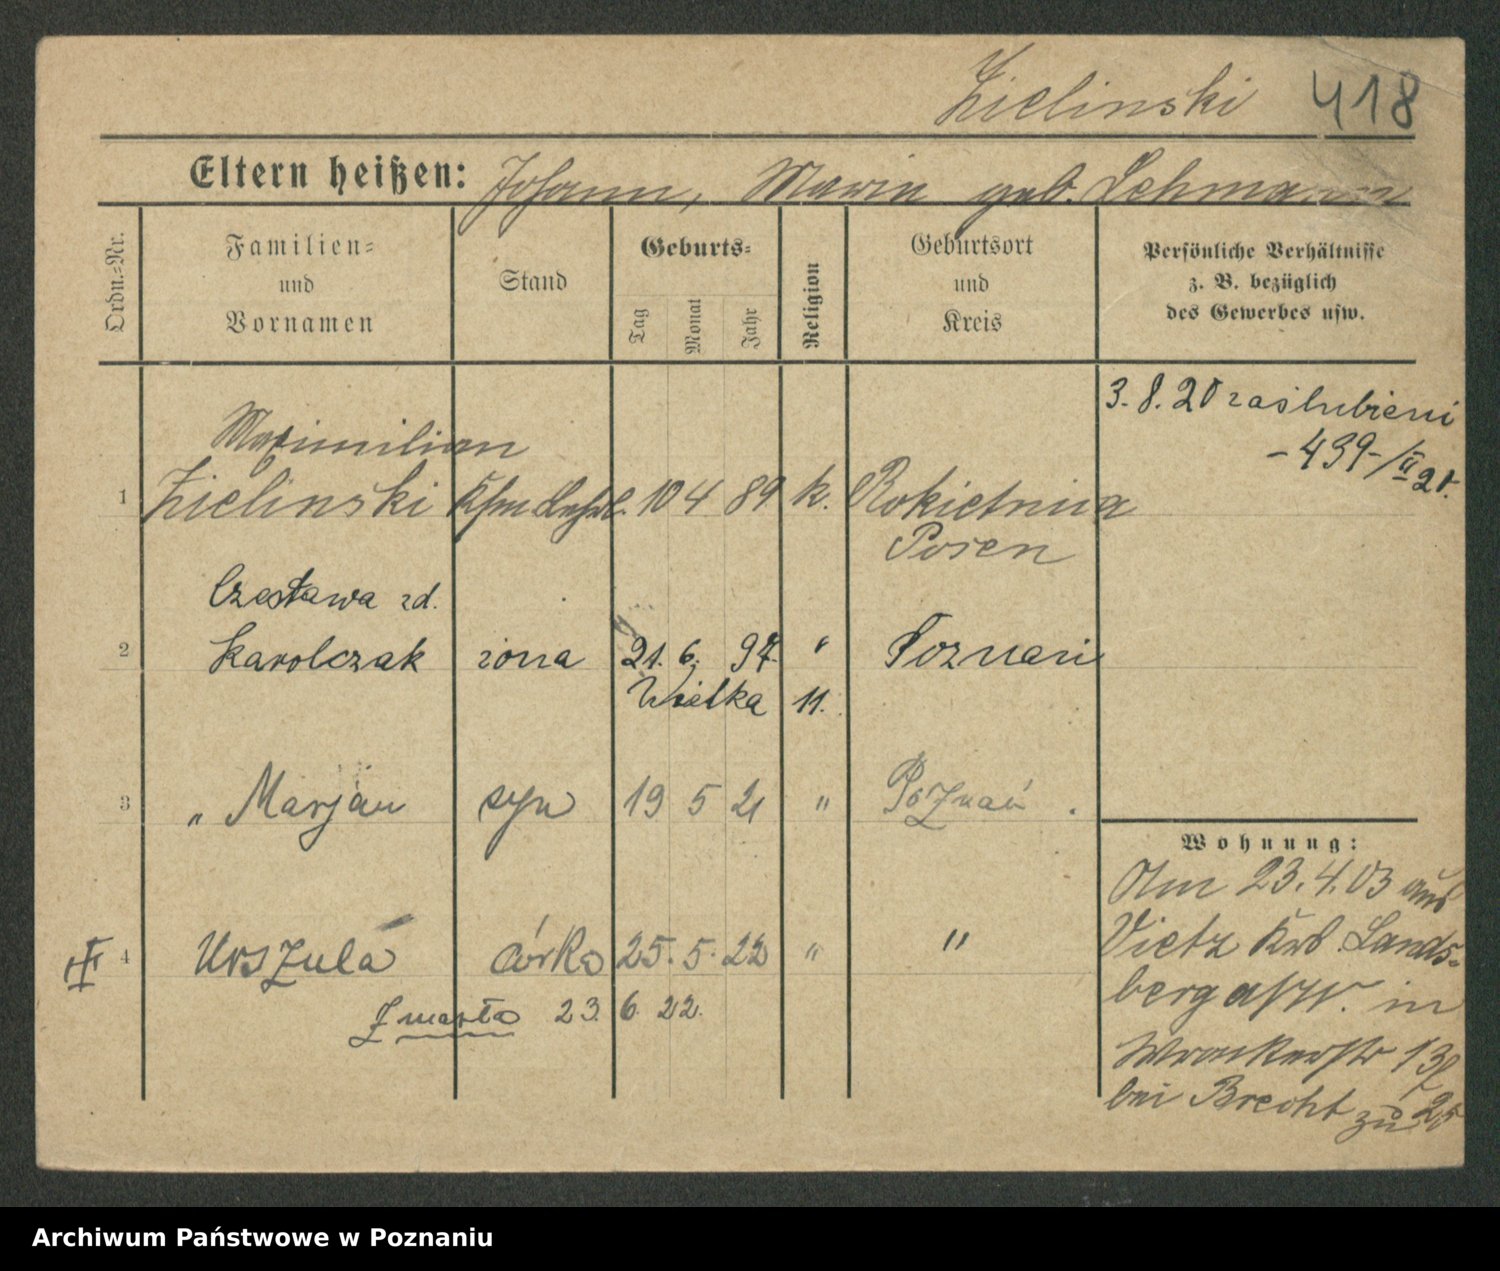 Zielinski 418
Eltern heißen: Johann, Maria geb. Lehmann
Ordn.=Nr.
Familien=
und
Vornamen
Stand
Geburts=
Tag
Monat
Jahr
Religion
Geburtsort
und
Kreis
Persönliche Verhältnisse
z. B. bezüglich
des Gewerbes usw.
3. 8. 20 zaślubieni
- 439 - / II 20.
Maximilian
1 Zielinski Kfm Lehrl. 10 4 89 k. Rokietnica
Posen
Czesława zd.
2 Karolczak żona 21. 6. 97 " Poznań
Wielka 11.
3 " Marjan syn 19 5 21 " Poznań
4 Urszula córka 25. 5. 22 " "
Zmarła 23. 6. 22.
Wohnung:
Am 23. 4. 03 aus
Vietz Krs Lands-
berg a/W. in
Wronkerstr 13
bei Brecht zu 25